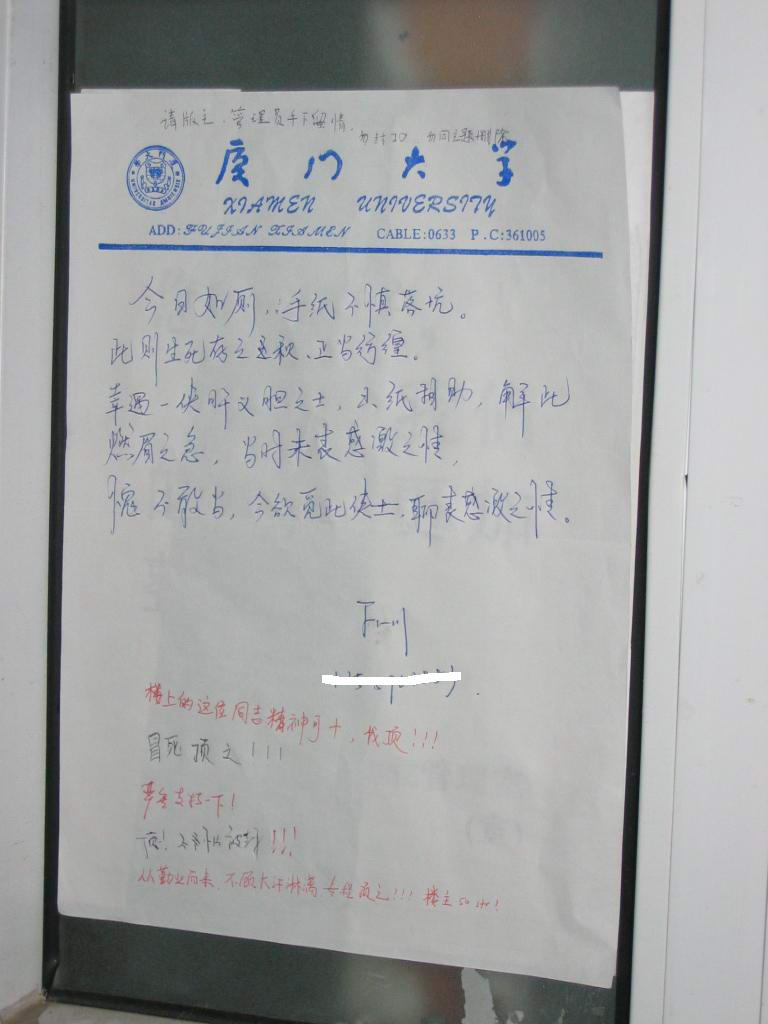 请版主、管理员手下留情。
勿封ID 勿同主题删除
厦门大学
XIAMEN UNIVERSITY
ADD:FUJIAN XIAMEN CABLE:0633 P.C:361005
今日如厕,手纸不慎落坑。
此则生死存亡之秋、正当彷徨。
幸遇一侠肝义胆之士,以纸相助,解此
燃眉之急,当时未表感激之情,
愧不敢当,今欲觅此侠士,聊表感激之情。
楼上的这位同志精神可+,我顶!!!
冒死顶之!!!
支持一下!
顶!
从勤业而来,不顾大汗淋漓 顶之!!! 楼主